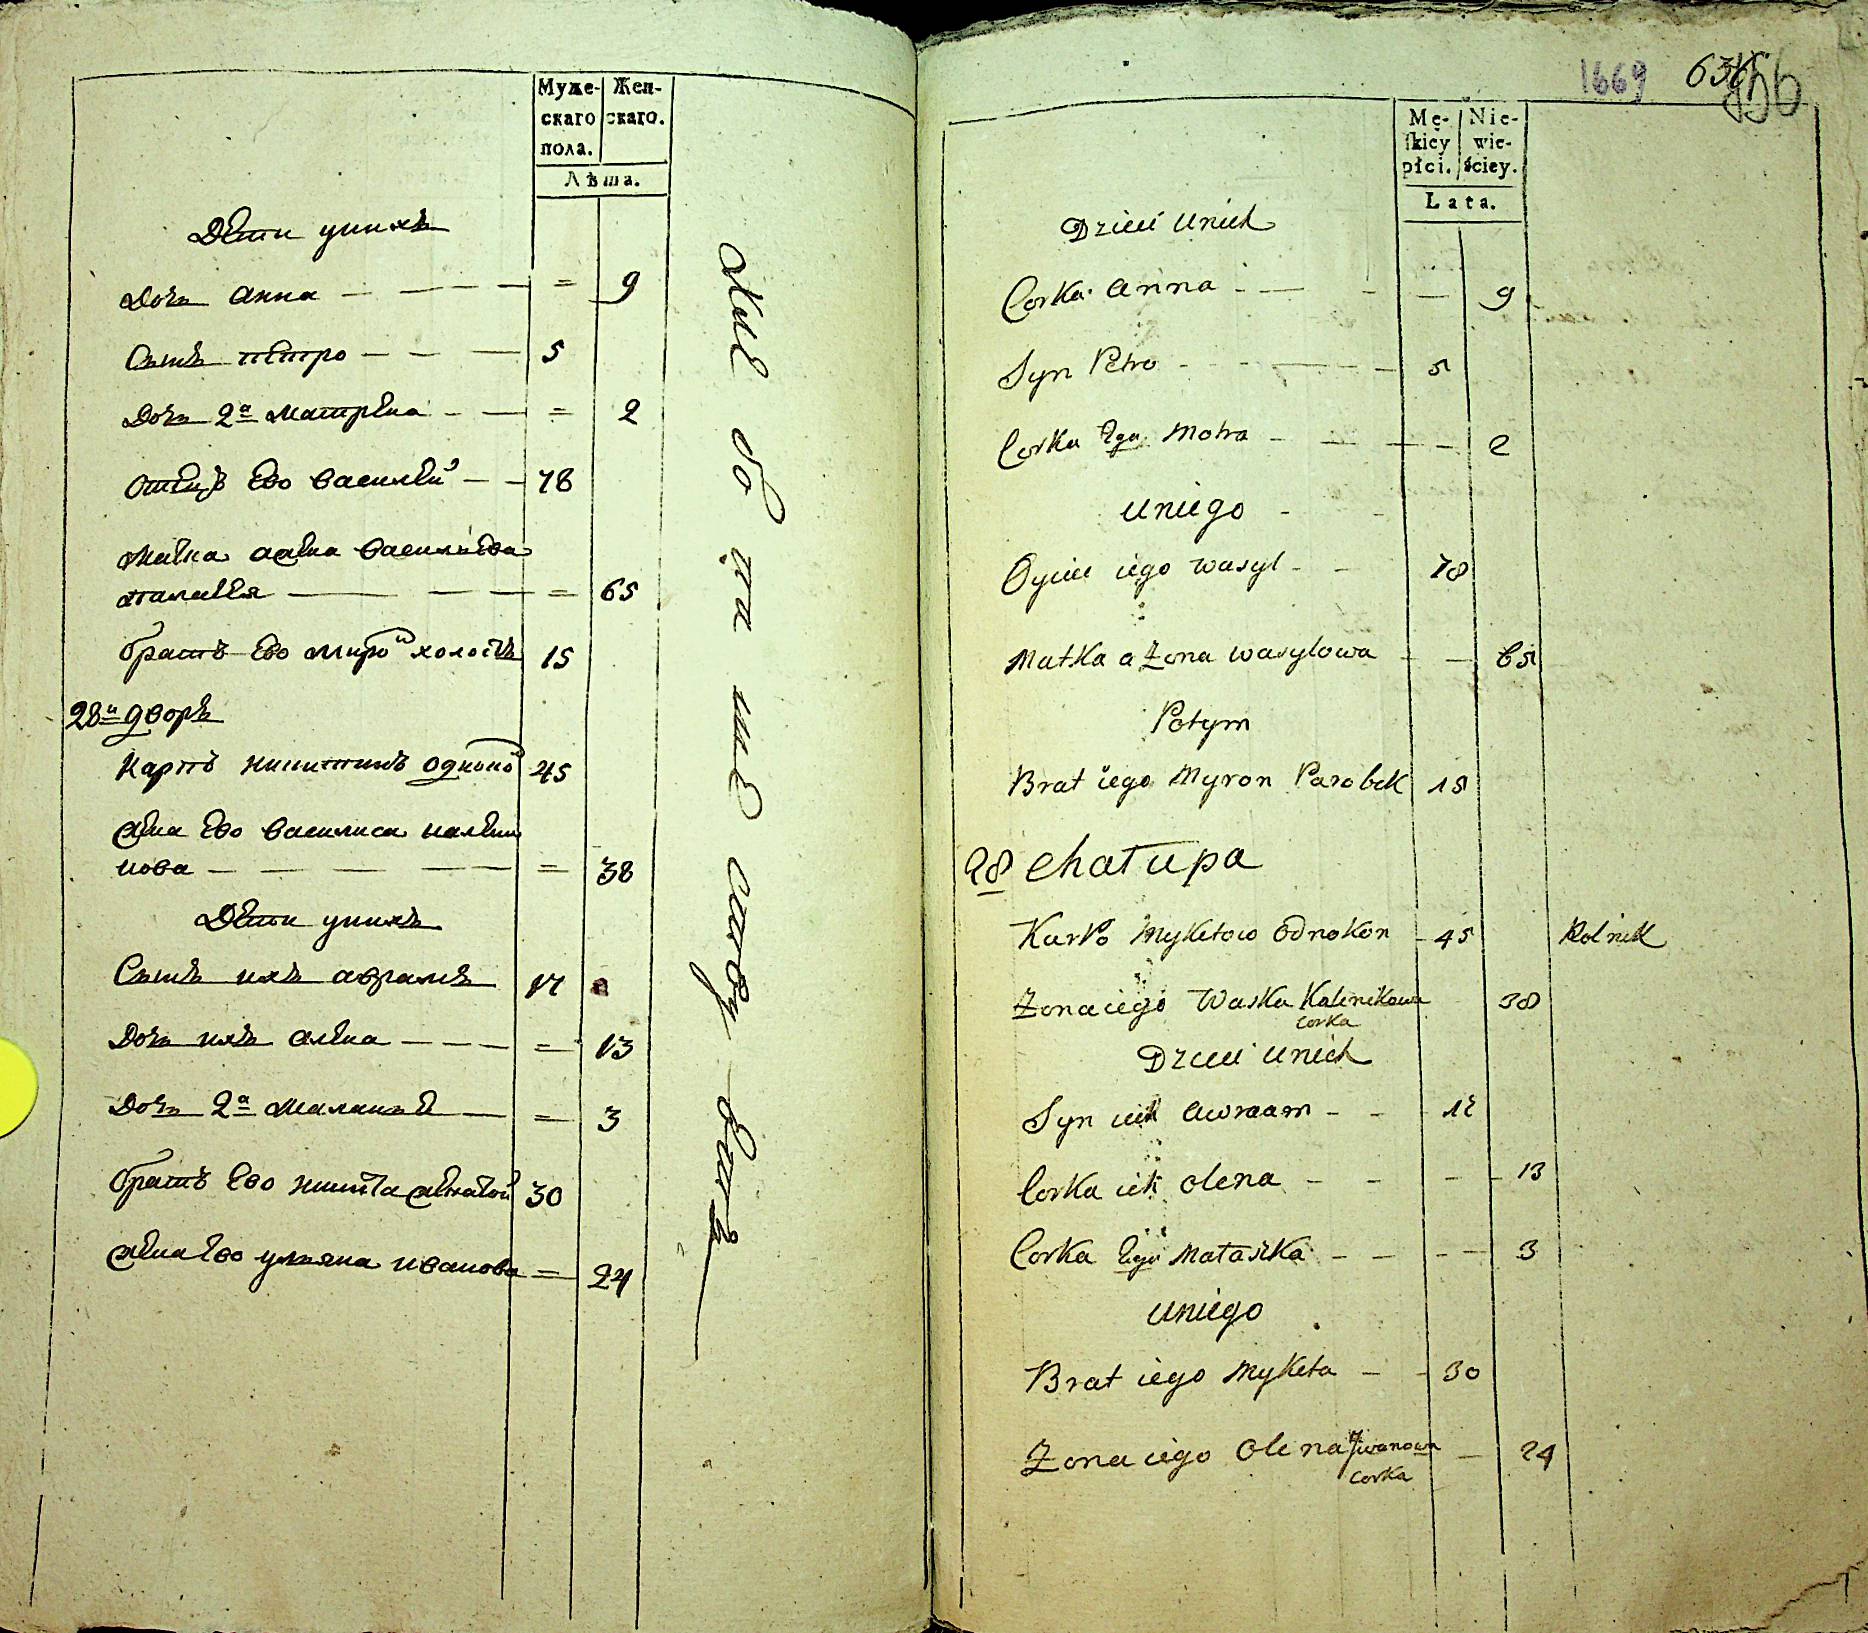 Муже- Жен-
скаго скаго.
пола.
Лѣта.
Дети унихъ
Дочь анна — — — — = 9
Сынъ петро — — — 5
Дочь 2а матрена — — = 2
отецъ ево василей — — 78
65
братъ ево миро холостъ 15
28й дворъ
Карпъ никитинъ одноко 45
жена ево василиса калени
кова — — — — — = 38
Дети унихъ
Сынъ ихъ аврамъ 17
Дочь ихъ алена — — — = 13
Дочь 2а — = 3
братъ ево никита женатой 30
жена ево ульяна иванова = 24
1669 636
Mę- Nie-
skiey wie-
płci. ściey.
Lata.
Dzieci unich
Corka anna — — — — 9
Syn Petro — — — 5
Corka 2ga Motra — — — — 2
uniego
Oyciec iego wasyl — — 78
Matka a Zona wasylowa — — 65
Potym
Brat iego Myron Parobek 15
28 chałupa
Karpo Myketow odnokon — 45 Rolnik
Zona iego Waska Kalenikowa 38
corka
Dzieci unich
Syn ich awraam — — 17
Corka ich olena — — — — 13
Corka 2ga Małaśka — — — — 3
uniego
Brat iego Myketa — — 30
Zona iego Olena Jwanowa — 24
corka